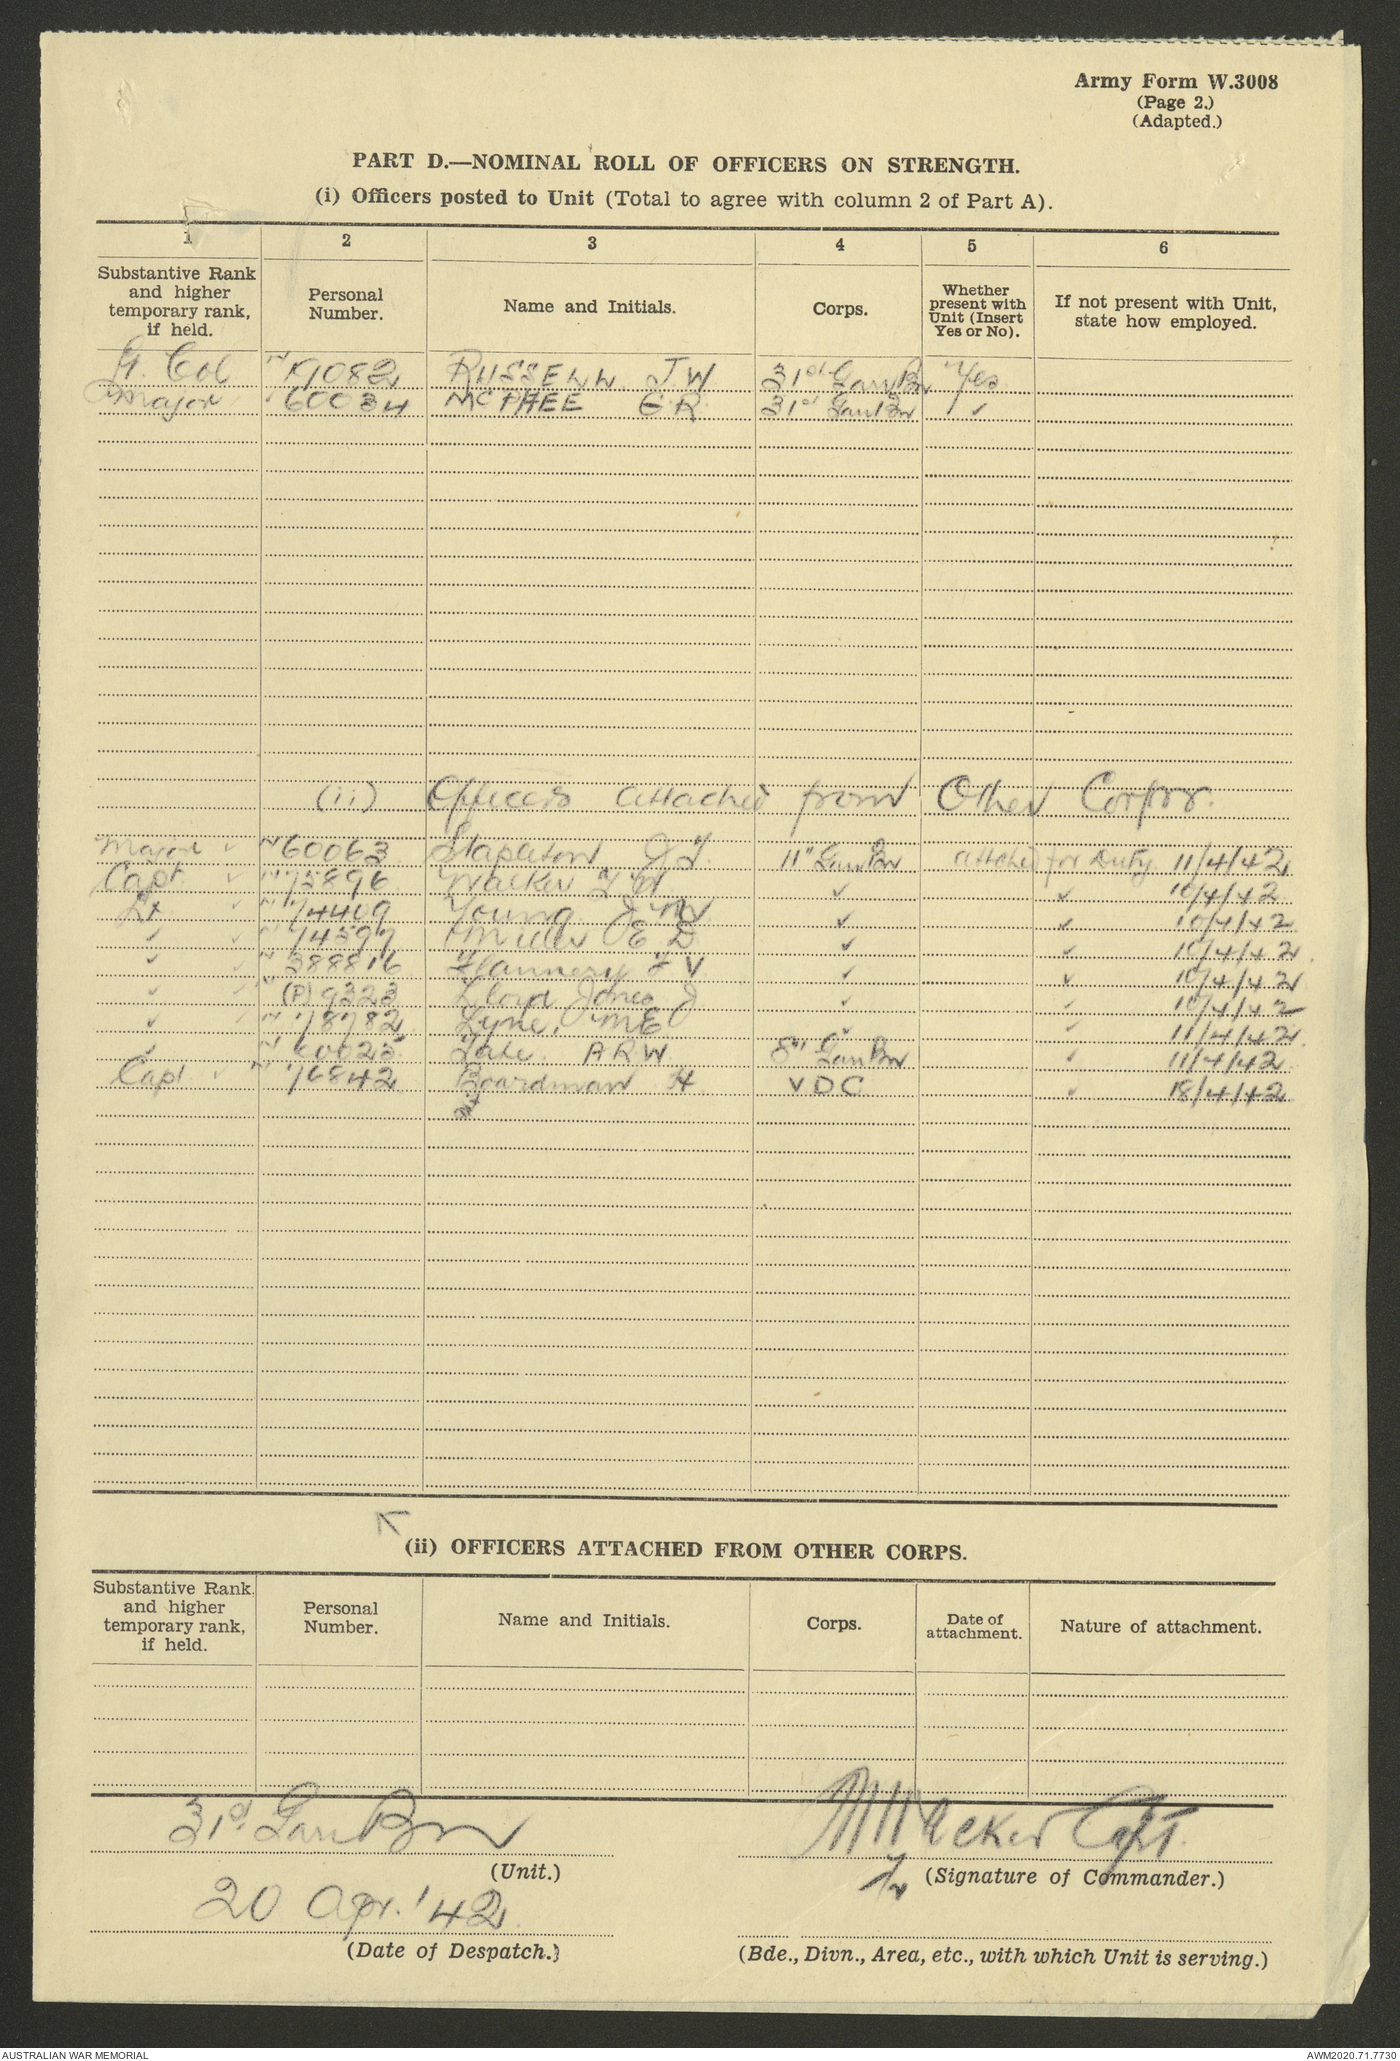 Army Form W.3008
(Page 2.)
(Adapted.)
PART D.—NOMINAL ROLL OF OFFICERS ON STRENGTH.
(i) Officers posted to Unit (Total to agree with column 2 of Part A).
1 2 3 4 5 6
Substantive Rank and higher temporary rank, if held. Personal Number. Name and Initials. Corps. Whether present with Unit (Insert Yes or No). If not present with Unit, state how employed.
Lt. Col 19082 RUSSELL J.W. 31st Gar Bn Yes
Major 60034 MCPHEE G.R. 31st Gar Bn ✓
(ii) Officers attached from Other Corps.
Major ✓ N 60063 Stapleton 11th Gar Bn attached for Duty. 11/4/42
Capt. ✓ N 75896 Walker ✓ ✓ 10/4/42
Lt ✓ N 74409 Young ✓ ✓ 10/4/42
✓ ✓ N 74597 Miller E D ✓ ✓ 10/4/42
✓ ✓ N 388816 Flannery F V ✓ ✓ 10/4/42
✓ ✓ N (P) 9323 Lloyd Jones J ✓ ✓ 10/4/42
✓ ✓ N 78782 Lyne, M E ✓ ✓ 11/4/42
✓ N 60025 Tate A R W 8th Gar Bn ✓ 11/4/42
Capt ✓ N 76842 Boardman H V D C ✓ 18/4/42
(ii) OFFICERS ATTACHED FROM OTHER CORPS.
Substantive Rank and higher temporary rank, if held. Personal Number. Name and Initials. Corps. Date of attachment. Nature of attachment.
31st Gar Bn Capt.
(Unit.) (Signature of Commander.)
20 Apr. '42
(Date of Despatch.) (Bde., Divn., Area, etc., with which Unit is serving.)
AUSTRALIAN WAR MEMORIAL AWM2020.71.7730